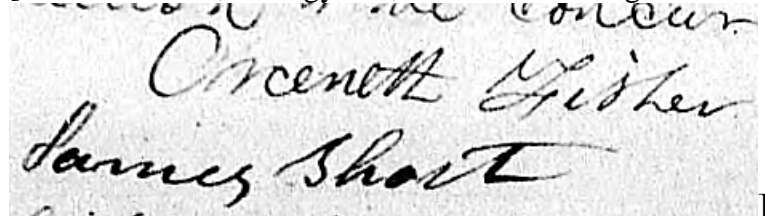 we concur
Orceneth Fisher
James Short